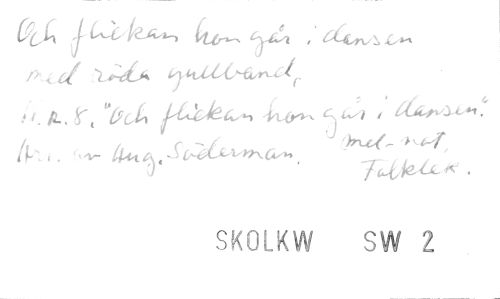 Och flickan hon går i dansen
med röda gullband,
N.R.8. "Och flickan hon går i dansen".
Arr. av Aug. Söderman. mel-not.
Folklek.
SKOLKW SW 2